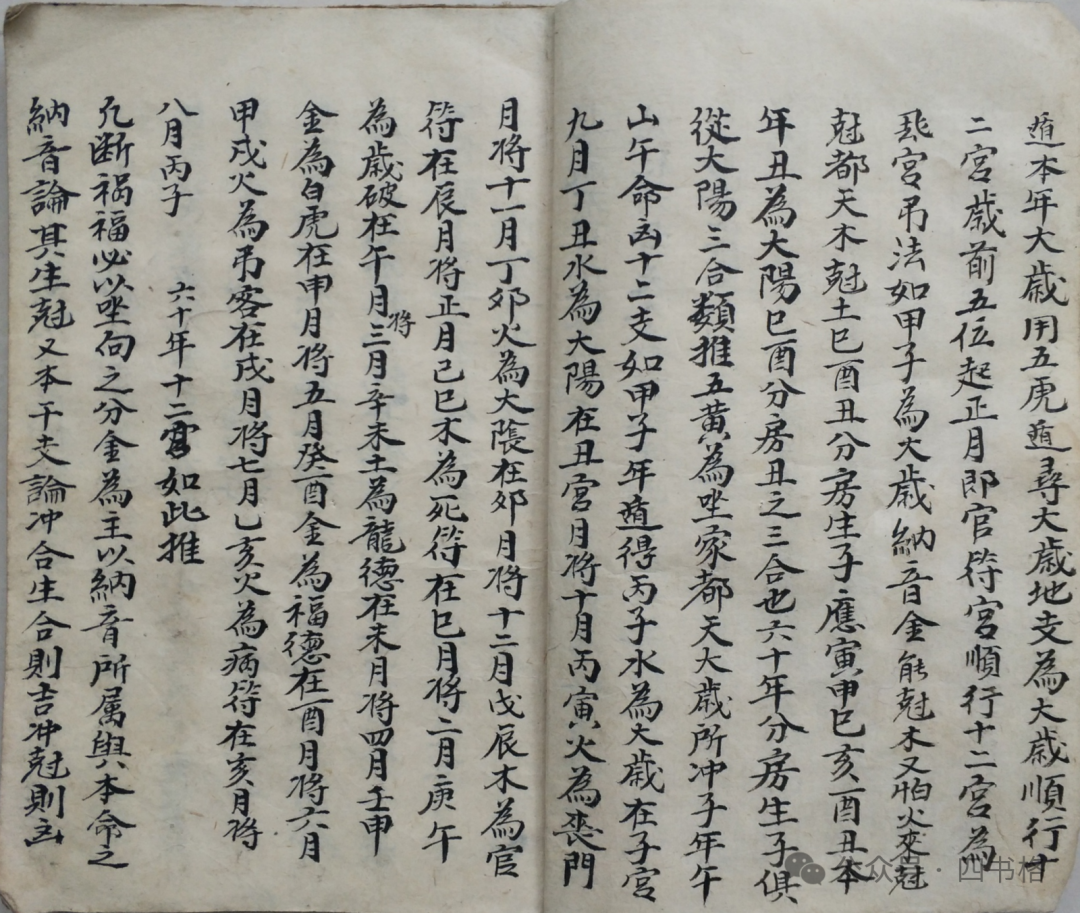 遁本年大歲用五虎遁尋大歲地支為大歲順行十
二宮歲前五位起正月即官符宮順行十二宮為
飛宮吊法如甲子為大歲納音金能尅木又怕火來尅
尅都天木尅土巳酉丑分房生子應寅申巳亥酉丑本
年丑為大陽巳酉分房丑之三合也六十年分房生子俱
從大陽三合類推五黃為坐家都天大歲所冲子年午
山午命凶十二支如甲子年遁得丙子水為大歲在子宮
九月丁丑水為大陽在丑宮月將十月丙寅火為喪門
月將十一月丁卯火為大陰在卯月將十二月戊辰木為官
符在辰月將正月己巳木為死符在巳月將二月庚午
為歲破在午月將三月辛未土為龍德在未月將四月壬申
金為白虎在申月將五月癸酉金為福德在酉月將六月
甲戌火為吊客在戌月將七月乙亥火為病符在亥月將
八月丙子 六十年十二宮如此推
凡斷禍福必以坐向之分金為主以納音所屬與本命之
納音論其生尅又本干支論冲合生合則吉冲尅則凶
公众号·四书格